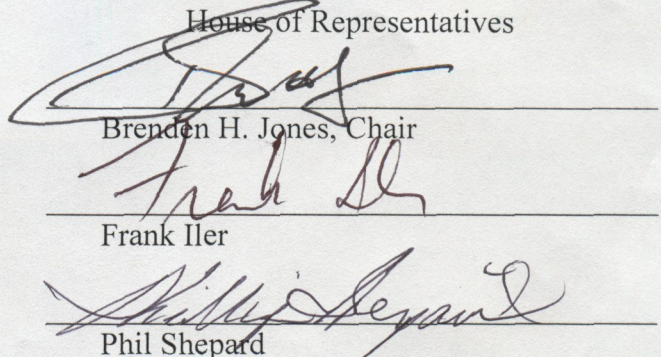 House of Representatives
Brenden H. Jones, Chair
Frank Iler
Frank Iler
Phillip Shepard
Phil Shepard